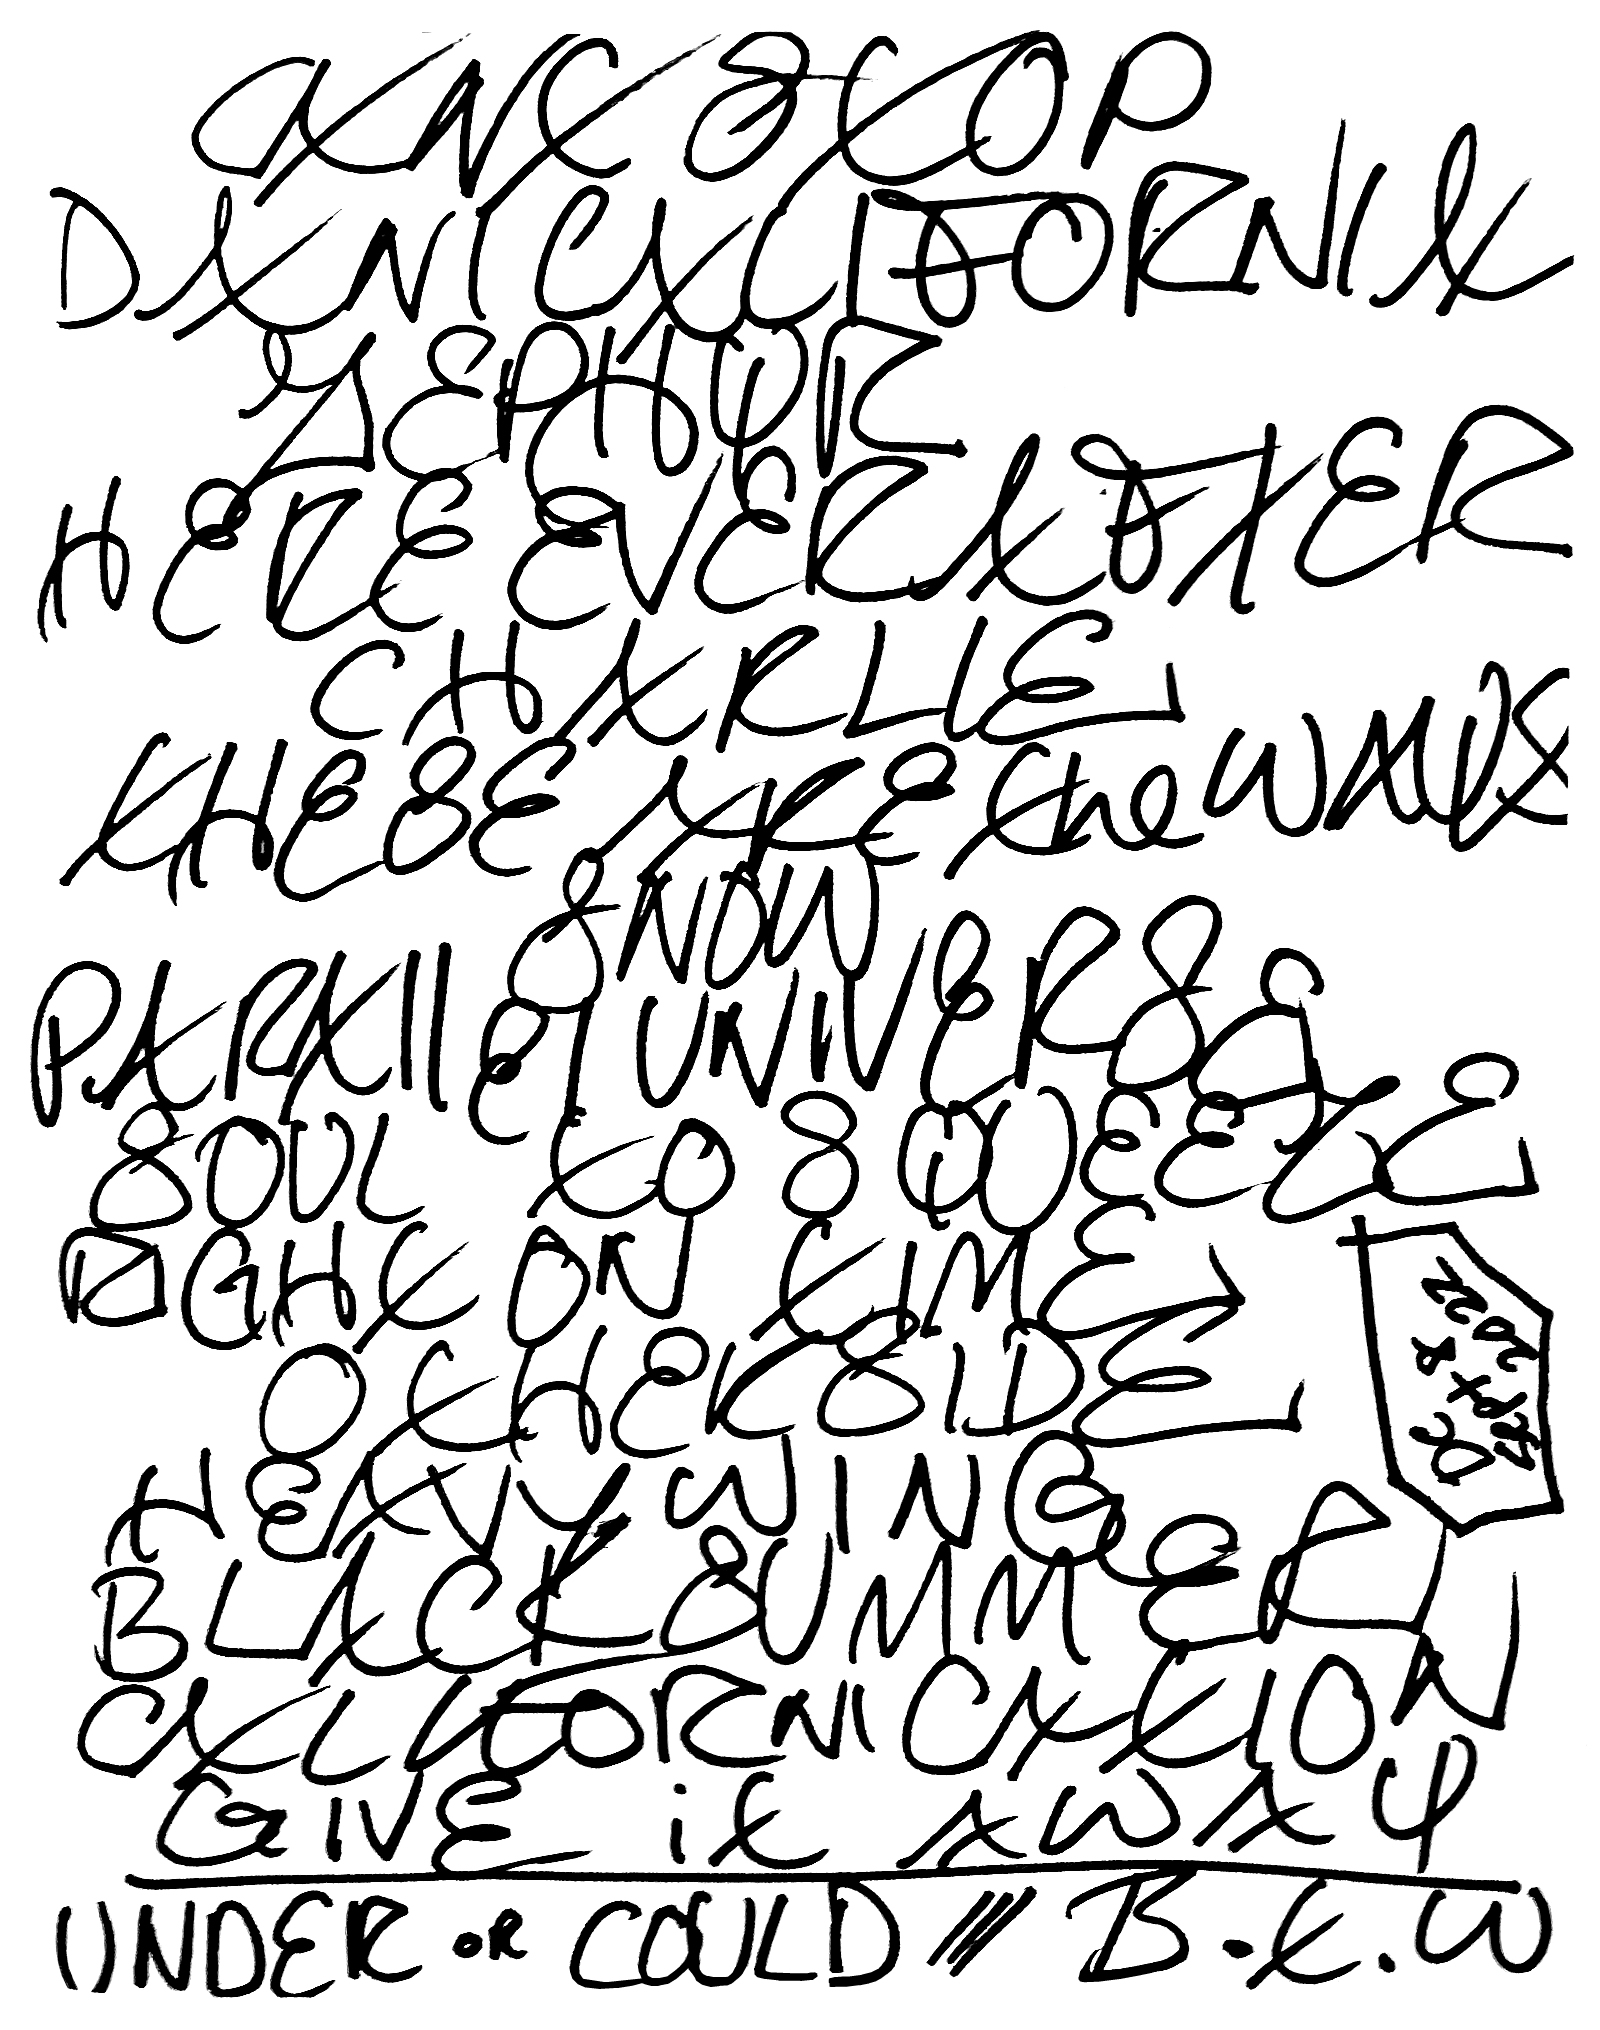 CAN'T STOP
DANI CALIFORNIA
ZEPHYR
HERE EVER AFTER
CHARLIE
THESE ARE the WAYS
SNOW
PARALLEL UNIVERSE
SOUL TO SQUEEZE
RIGHT ON TIME
OTHERSIDE
HEAVY WING
BLACK SUMMER
CALIFORNICATION
GIVE it AWAY
UNDER OR COULD /// B.T.W